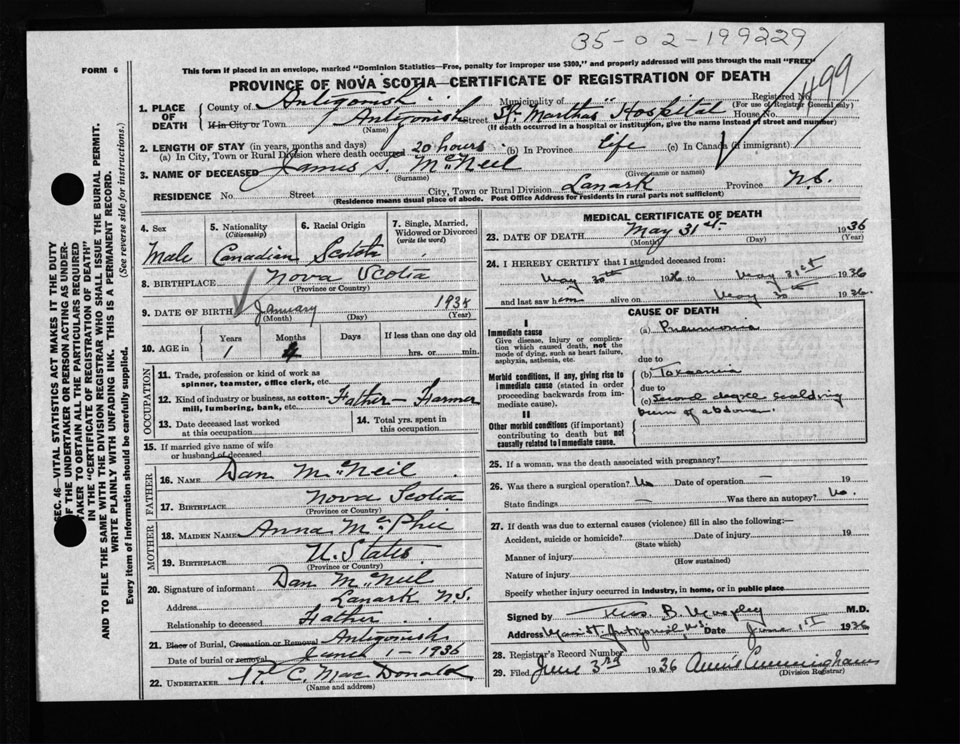 35-02-199229
FORM 6
This form if placed in an envelope, marked "Dominion Statistics—Free, penalty for improper use $300," and properly addressed will pass through the mail "FREE"
PROVINCE OF NOVA SCOTIA—CERTIFICATE OF REGISTRATION OF DEATH
499
1. PLACE OF DEATH
County of Antigonish Municipality of Registered No.
(For use of Registrar General only)
If in City or Town Antigonish Street St. Martha's Hospital House No.
(Name) (If death occurred in a hospital or institution, give the name instead of street and number)
2. LENGTH OF STAY (in years, months and days)
(a) In City, Town or Rural Division where death occurred 20 hours (b) In Province Life (c) In Canada (if immigrant)
3. NAME OF DECEASED James S. McNeil
(Surname) (Given name or names)
RESIDENCE No. Street City, Town or Rural Division Lanark Province N.S.
(Residence means usual place of abode. Post Office Address for residents in rural parts not sufficient)
4. Sex Male
5. Nationality (Citizenship) Canadian
6. Racial Origin Scotch
7. Single, Married, Widowed or Divorced (write the word)
8. BIRTHPLACE Nova Scotia
(Province or Country)
9. DATE OF BIRTH January 1935
(Month) (Day) (Year)
10. AGE in Years Months Days If less than one day old
1 4 hrs. or min.
OCCUPATION
11. Trade, profession or kind of work as spinner, teamster, office clerk, etc.
12. Kind of industry or business, as cotton-mill, lumbering, bank, etc. Father - Farmer
13. Date deceased last worked at this occupation
14. Total yrs. spent in this occupation
15. If married give name of wife or husband of deceased
FATHER
16. NAME Dan McNeil
17. BIRTHPLACE Nova Scotia
(Province or Country)
MOTHER
18. MAIDEN NAME Anna McPhie
19. BIRTHPLACE U. States
(Province or Country)
20. Signature of informant Dan McNeil
Address Lanark N.S.
Relationship to deceased Father
21. Place of Burial, Cremation or Removal Antigonish
Date of burial or removal June 1 - 1936
22. UNDERTAKER C. MacDonald
(Name and address)
MEDICAL CERTIFICATE OF DEATH
23. DATE OF DEATH May 31st. 1936
(Month) (Day) (Year)
24. I HEREBY CERTIFY that I attended deceased from:
May 30th 1936 to May 31st 1936
and last saw him alive on May 30th 1936.
CAUSE OF DEATH
I
Immediate cause
Give disease, injury or complication which caused death, not the mode of dying, such as heart failure, asphyxia, asthenia, etc.
(a) Pneumonia
due to
Morbid conditions, if any, giving rise to immediate cause (stated in order proceeding backwards from immediate cause).
(b) Toxaemia
due to
(c) Second degree scalding
burn of abdomen.
II
Other morbid conditions (if important) contributing to death but not causally related to immediate cause.
25. If a woman, was the death associated with pregnancy?
26. Was there a surgical operation? No Date of operation — 19
State findings — Was there an autopsy? No.
27. If death was due to external causes (violence) fill in also the following:—
Accident, suicide or homicide? Date of injury 19
(State which)
Manner of injury
(How sustained)
Nature of injury
Specify whether injury occurred in industry, in home, or in public place
Signed by Thos. B. Murphy M.D.
Address Antigonish, N.S. Date June 1st 1936
28. Registrar's Record Number
29. Filed June 3rd 1936 Annie Cunningham
(Division Registrar)
SEC. 46—VITAL STATISTICS ACT MAKES IT THE DUTY
OF THE UNDERTAKER OR PERSON ACTING AS UNDER-
TAKER TO OBTAIN ALL THE PARTICULARS REQUIRED
IN THE "CERTIFICATE OF REGISTRATION OF DEATH"
AND TO FILE THE SAME WITH THE DIVISION REGISTRAR WHO SHALL ISSUE THE BURIAL PERMIT.
WRITE PLAINLY WITH UNFADING INK. THIS IS A PERMANENT RECORD.
Every item of Information should be carefully supplied. (See reverse side for instructions.)